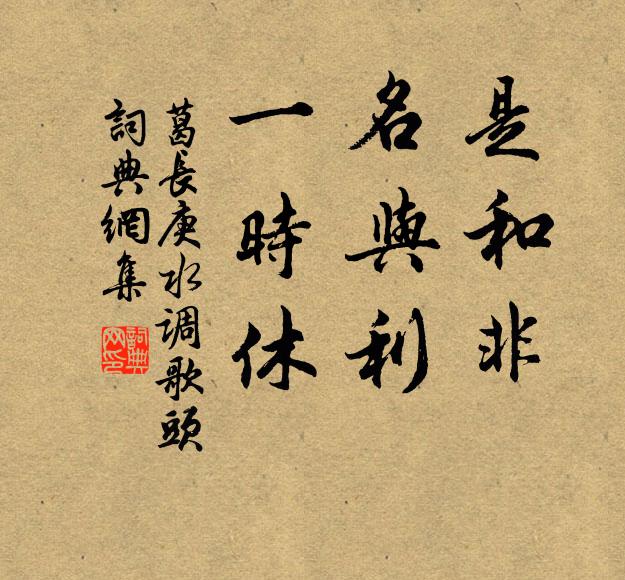 是和非
名與利
一時休
葛長庚水调歌頭
詞典網集
詞典
网印